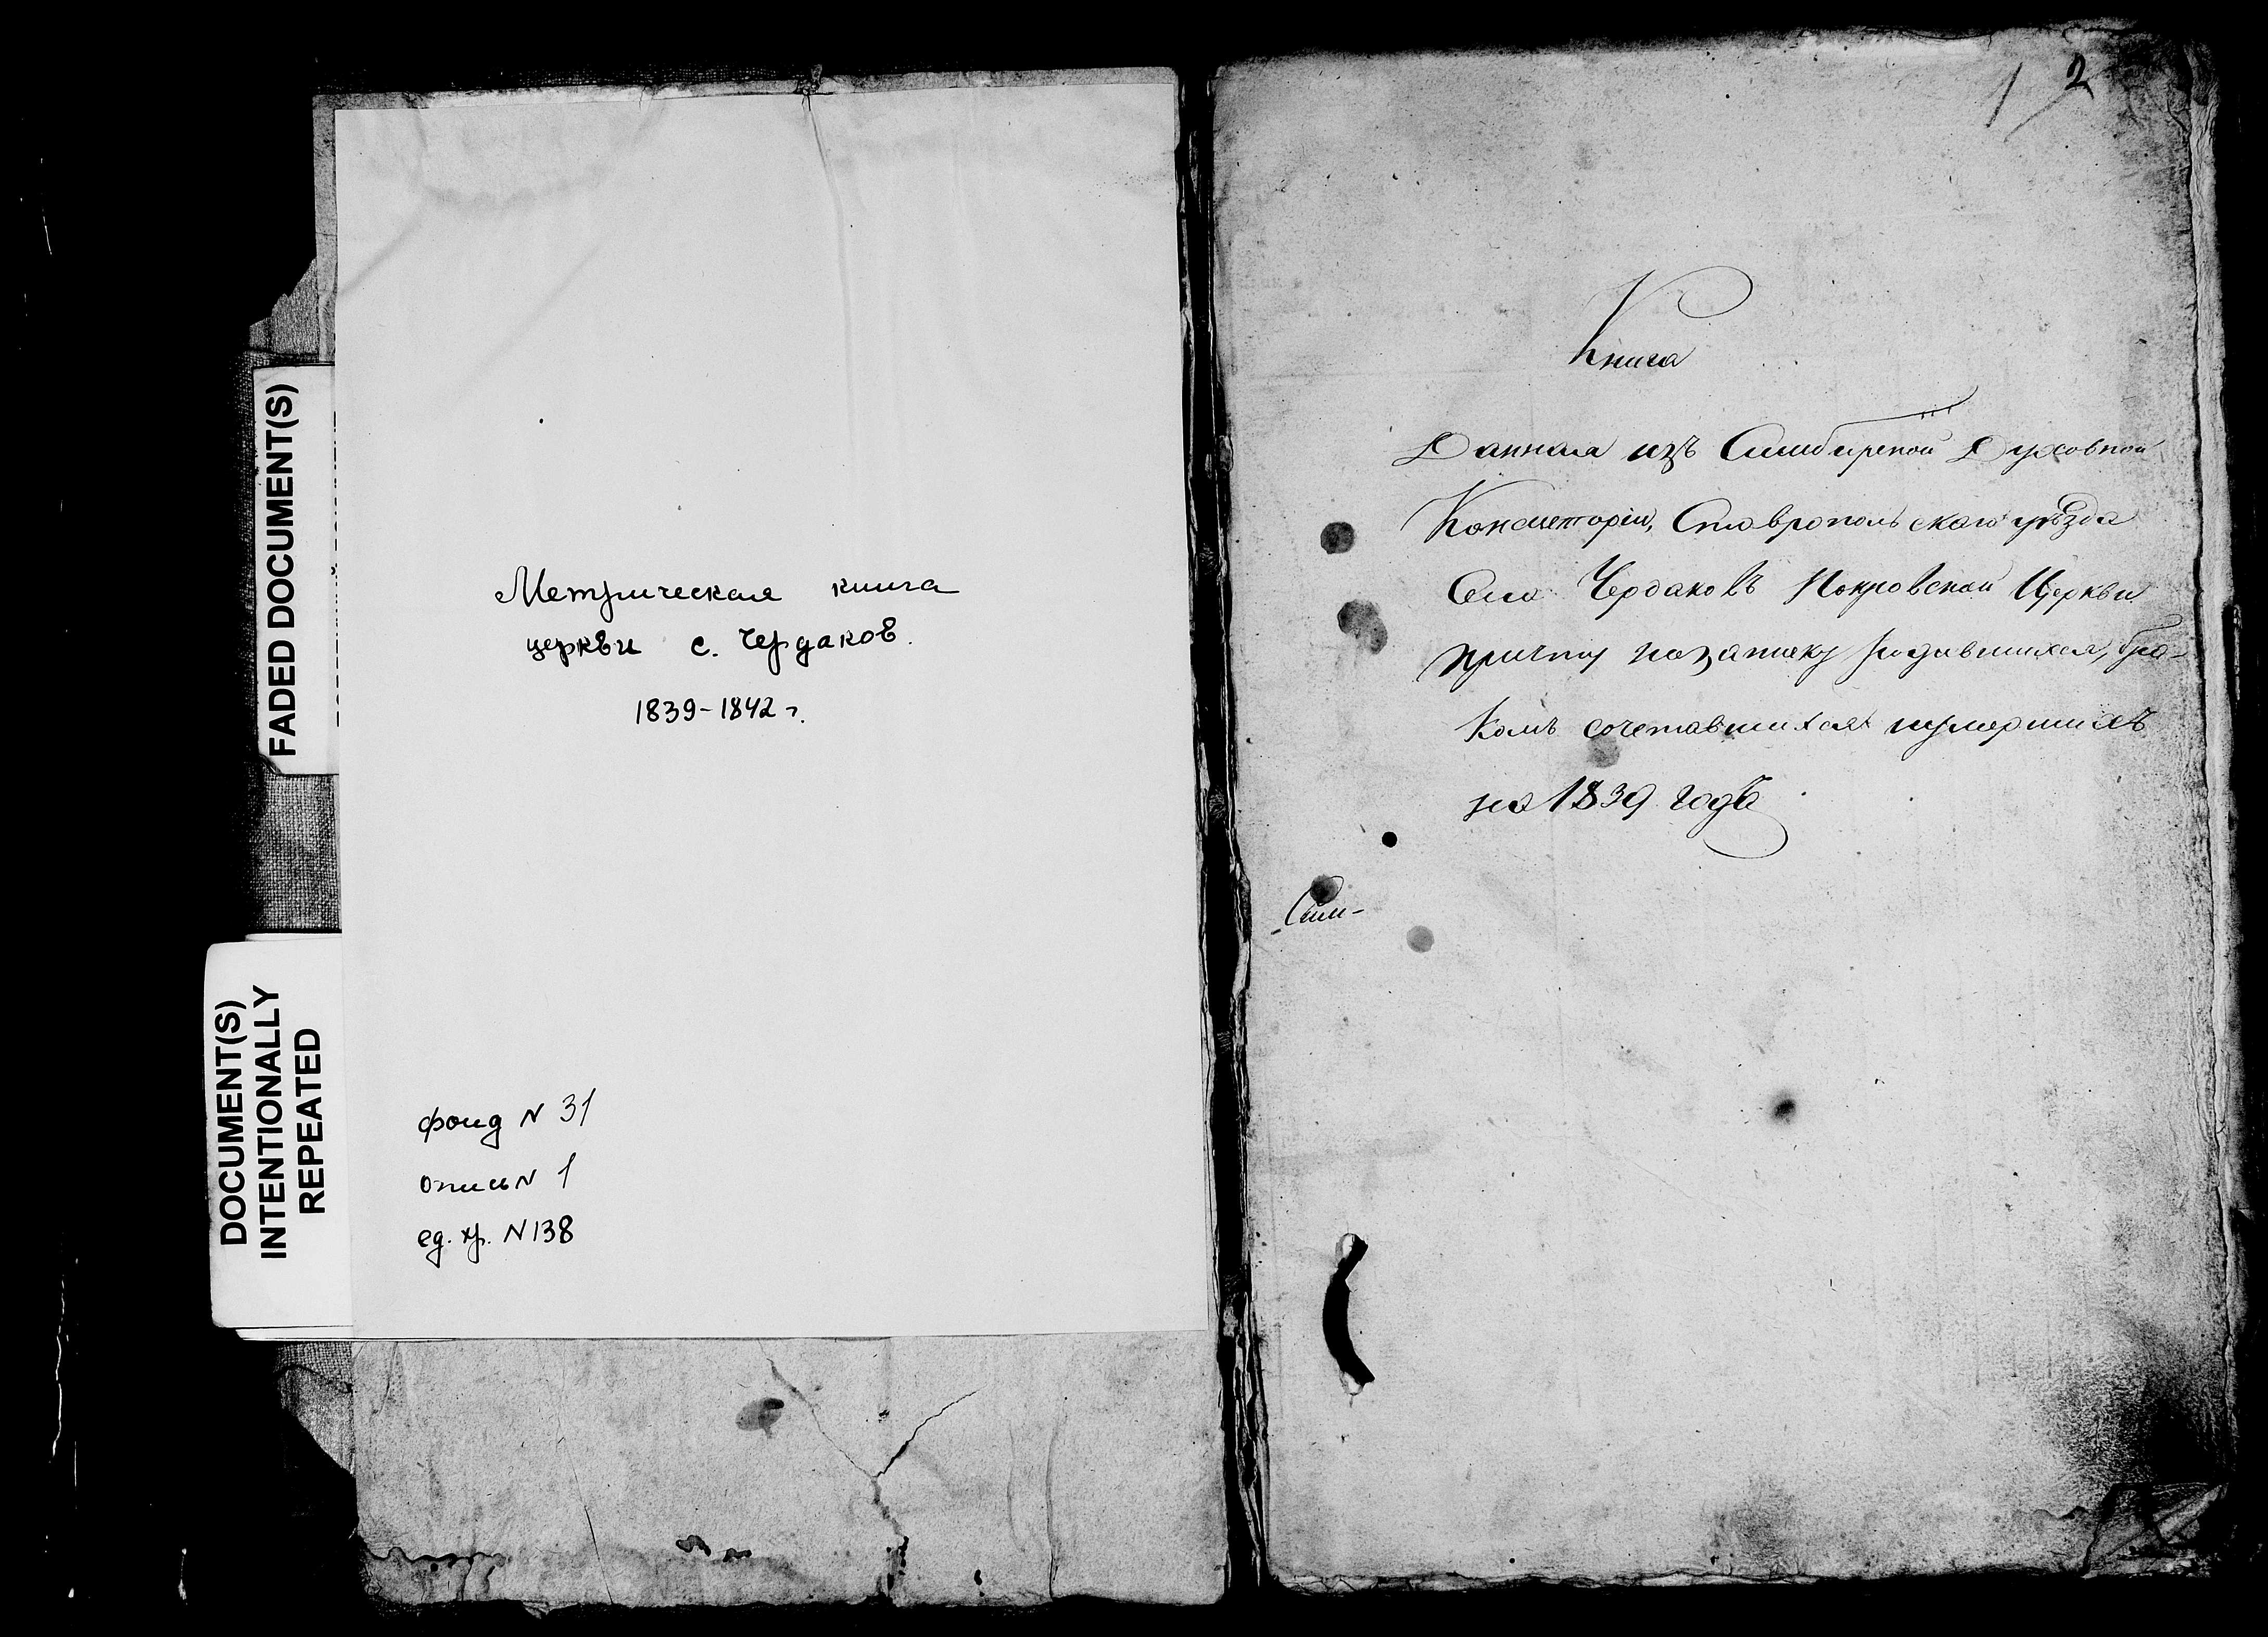 FADED DOCUMENT(S)
DOCUMENT(S)
INTENTIONALLY
REPEATED
Метрическая книга
церкви с. Чердаков.
1839-1842 г.
фонд N 31
опись N 1
ед. хр. N 138
1 2
Книга
Данная изъ Симбирской Духовной
Консисторіи, Ставропольскаго уѣзда
Села Чердаковъ Покровской Церкви
причту на записку родившихся, бра-
комъ сочетавшихся и умершихъ
на 1839 годъ
Сим-